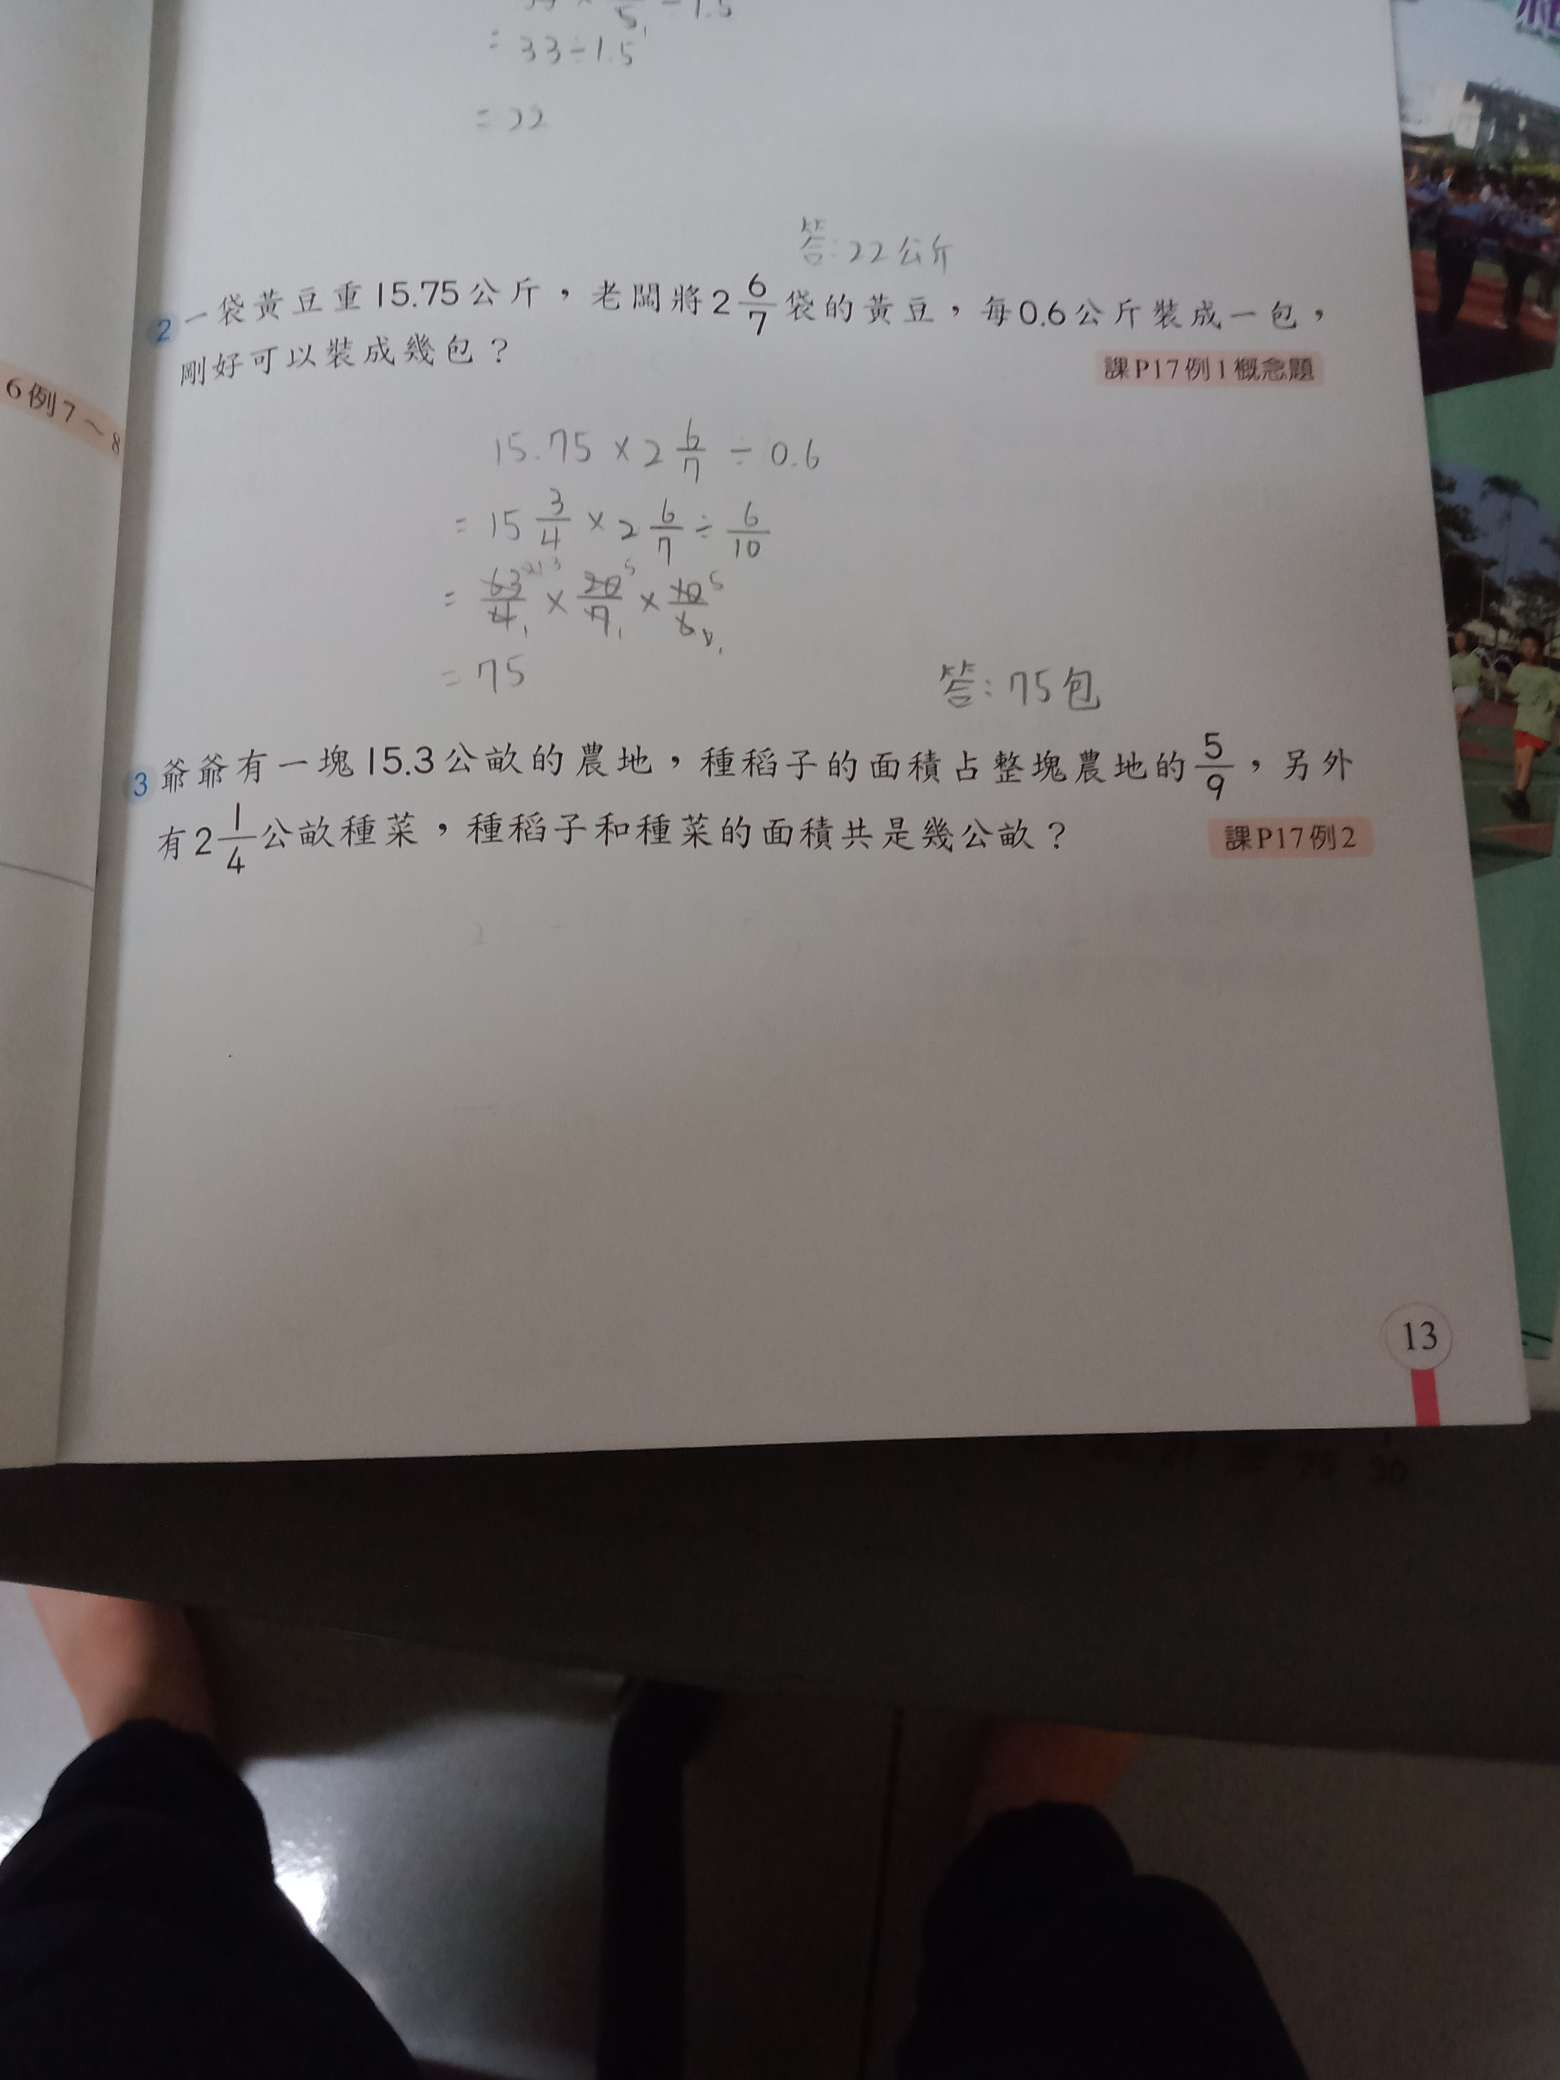 = 33÷1.5
= 22
答:22公斤
2 一袋黃豆重15.75公斤，老闆將2 6/7袋的黃豆，每0.6公斤裝成一包，
剛好可以裝成幾包？
課P17例1概念題
6例7～8
15.75 × 2 6/7 ÷ 0.6
= 15 3/4 × 2 6/7 ÷ 6/10
= 63/4 × 20/7 × 10/6
= 75
答:75包
3 爺爺有一塊15.3公畝的農地，種稻子的面積占整塊農地的5/9，另外
有2 1/4公畝種菜，種稻子和種菜的面積共是幾公畝？
課P17例2
13